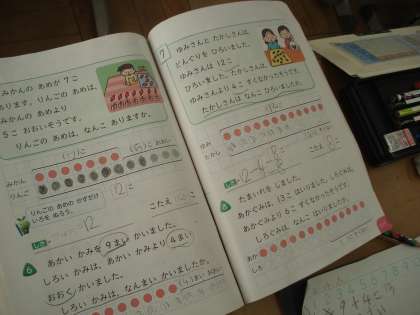 みかんの あめが 7こ
あります。りんごの あめは、
みかんの あめより
5こ おおいそうです。
りんごの あめは、なんこ ありますか。
みかん
りんご
りんごの あめの かずだけ
いろを ぬろう。
こたえ
しき
6
あかい かみを 9まい かいました。
しろい かみは、あかい かみより 4まい
おおく かいました。
しろい かみは、なんまい かいましたか。
7
ゆみさんと たかしさんは、
どんぐりを ひろいました。
ゆみさんは 12こ
ひろいました。たかしさんは、
ゆみさんより 4こ すくなかったそうです。
たかしさんは なんこ ひろいましたか。
ゆみ
たかし
しき
こたえ
8
たまいれを しました。
あかぐみは、13こ はいりました。しろぐみは、
あかぐみより 6こ すくなかったそうです。
しろぐみは なんこ はいりましたか。
あか
しろ